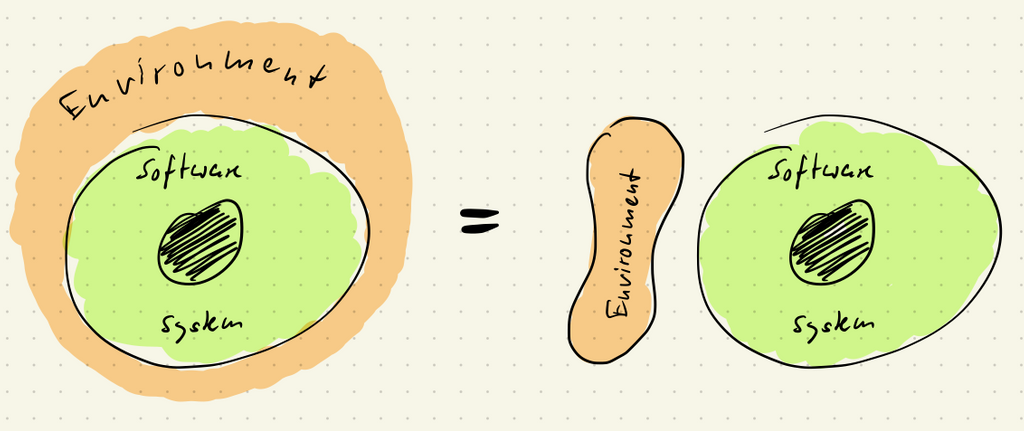 Environment
Software
System
=
Environment
Software
System